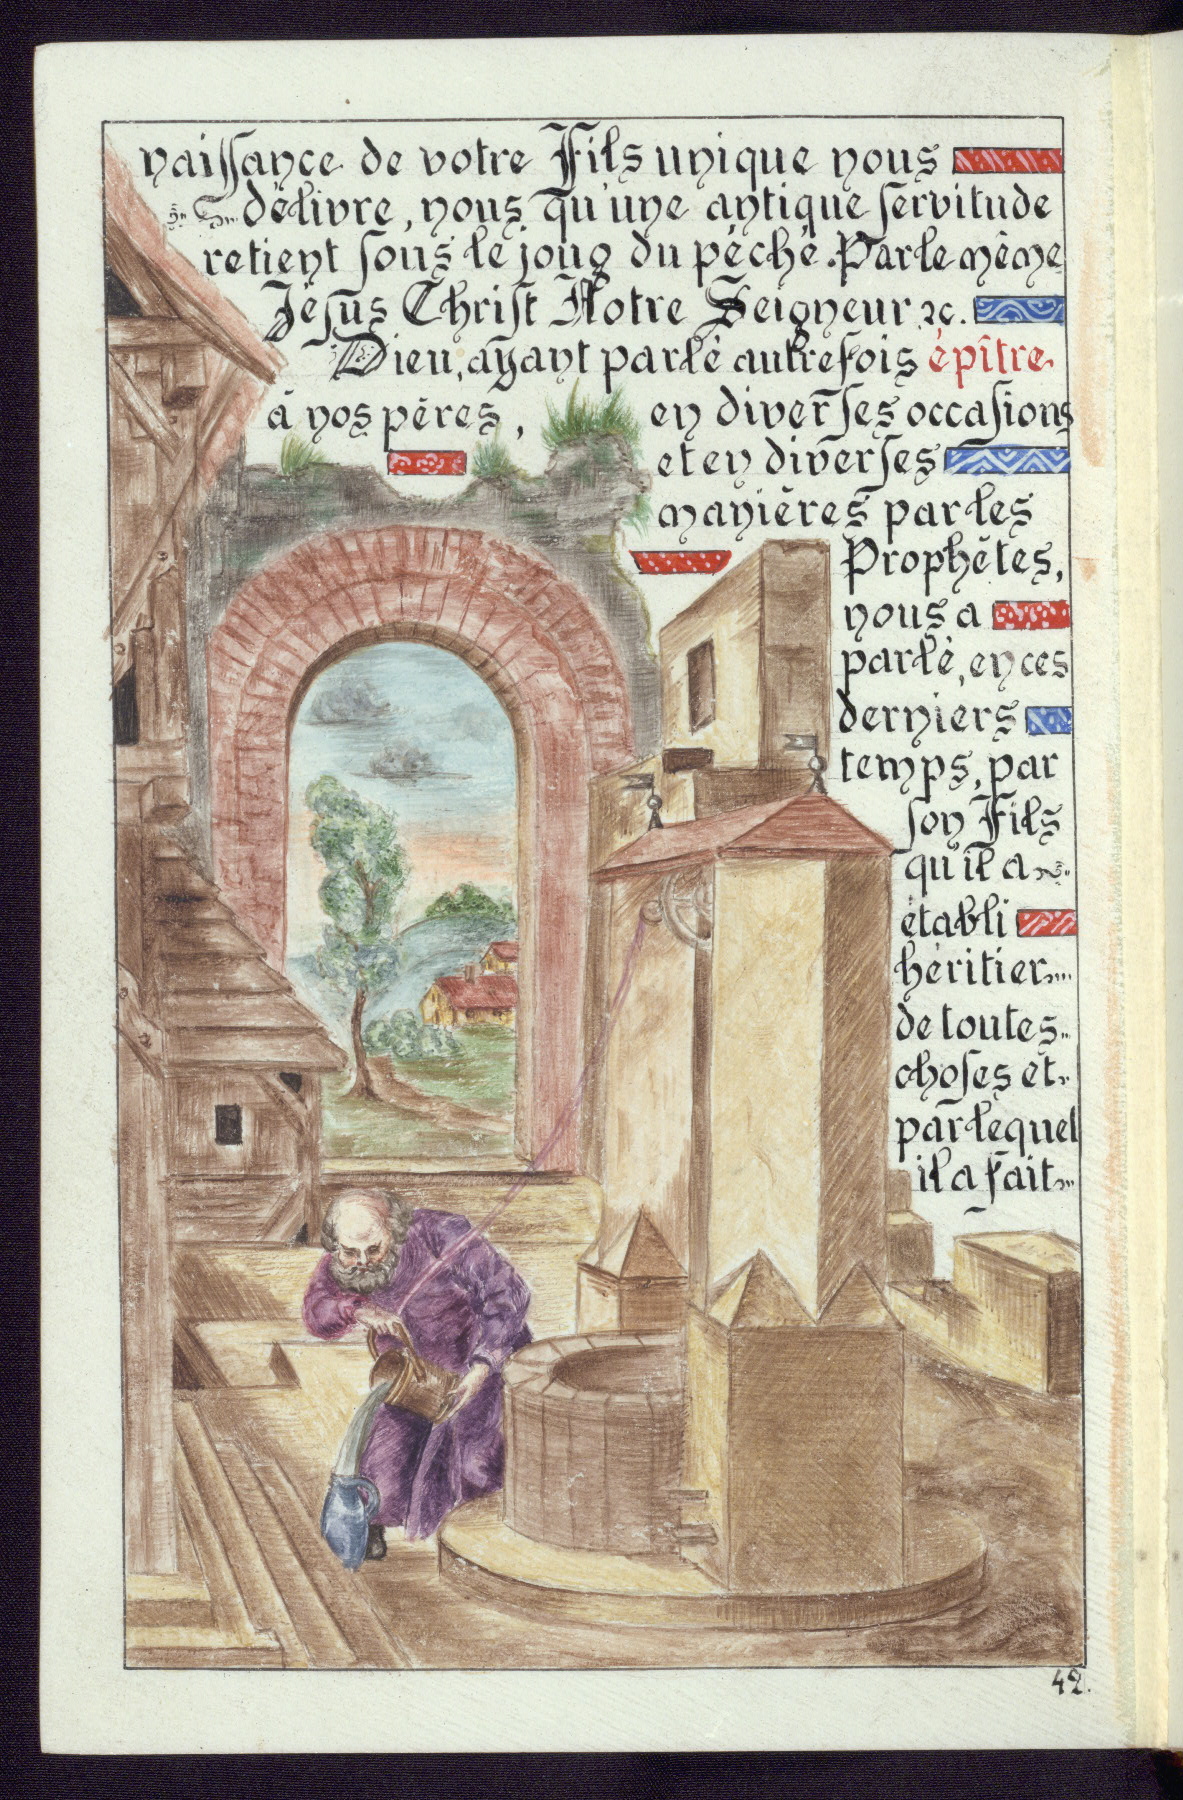 naissance de votre Fils unique nous
délivre, nous qu'une antique servitude
retient sous le joug du péché. Par le même
Jésus Christ Notre Seigneur, ꝛc.
Dieu, ayant parlé autrefois épître
à nos pères, en diverses occasions
et en diverses
manières par les
Prophètes,
nous a
parlé, en ces
derniers
temps, par
son Fils
qu'il a
établi
héritier
de toutes
choses et
par lequel
il a fait
42.